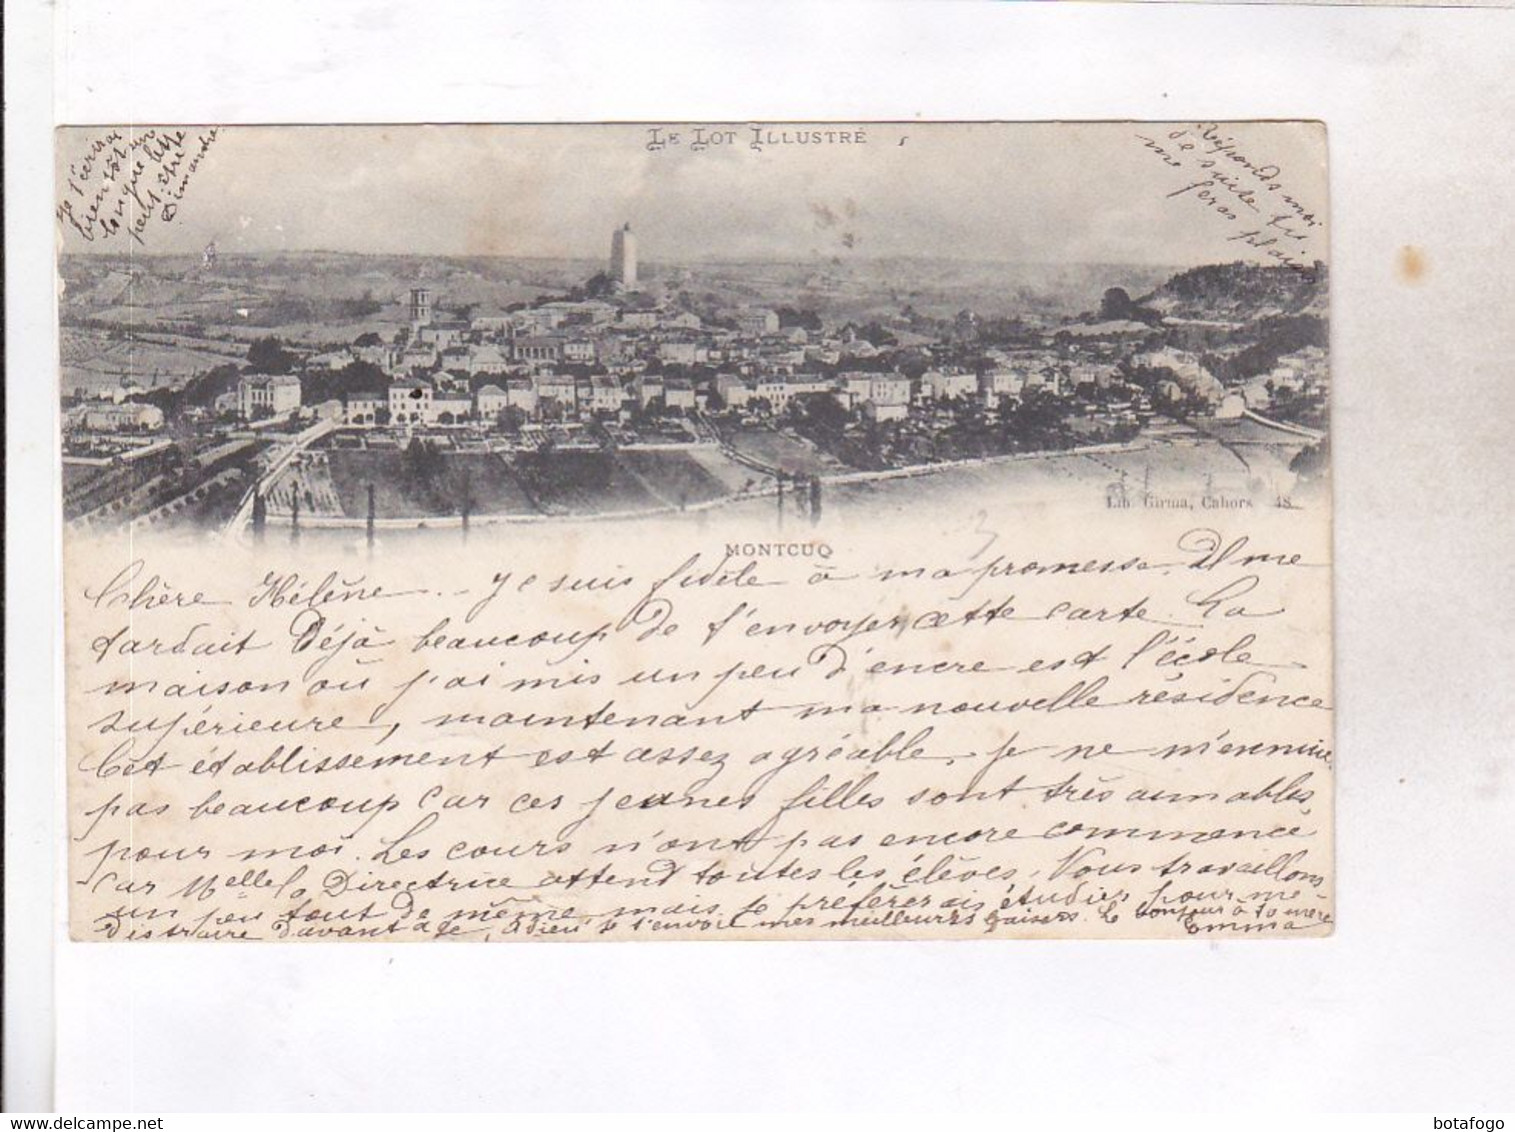 LE LOT ILLUSTRÉ
Je t'écrirai
bientôt une
longue lettre
peut-être
Dimanche
Réponds moi
de suite tu
me feras plaisir
Lib. Girma, Cahors 48
MONTCUQ
Chère Hélène. - Je suis fidèle à ma promesse. Il me
tardait Déjà beaucoup de t'envoyer cette carte. La
maison où j'ai mis un peu d'encre est l'école
supérieure, maintenant ma nouvelle résidence
Cet établissement est assez agréable. Je ne m'ennuie
pas beaucoup car ces jeunes filles sont très aimables,
pour moi. Les cours n'ont pas encore commencé
Car Melle la Directrice attend toutes les élèves. Nous travaillons
un peu tout de même, mais je préfèrerais étudier pour me
distraire davantage, adieu je t'envoie mes meilleurs baisers. Le bonjour à ta mère
Emma
botafogo